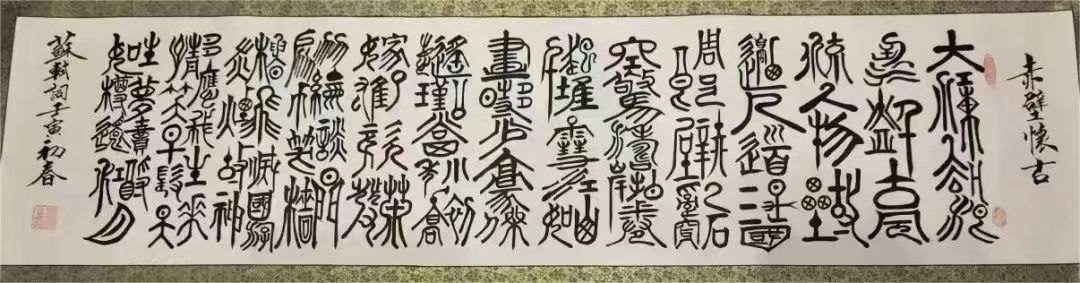 赤壁懷古
大江東去浪
淘盡千古風
流人物故壘西
邊人道三國
周郎赤壁亂石
穿空驚濤拍岸捲
起千堆雪江山如
畫一時多少豪傑
遙想公瑾當年小喬初
嫁了雄姿英發
羽扇綸巾談笑間檣
櫓灰飛煙滅故國神遊
多情應笑我早生華髮人
生如夢一尊還酹江月
蘇軾詞壬寅初春